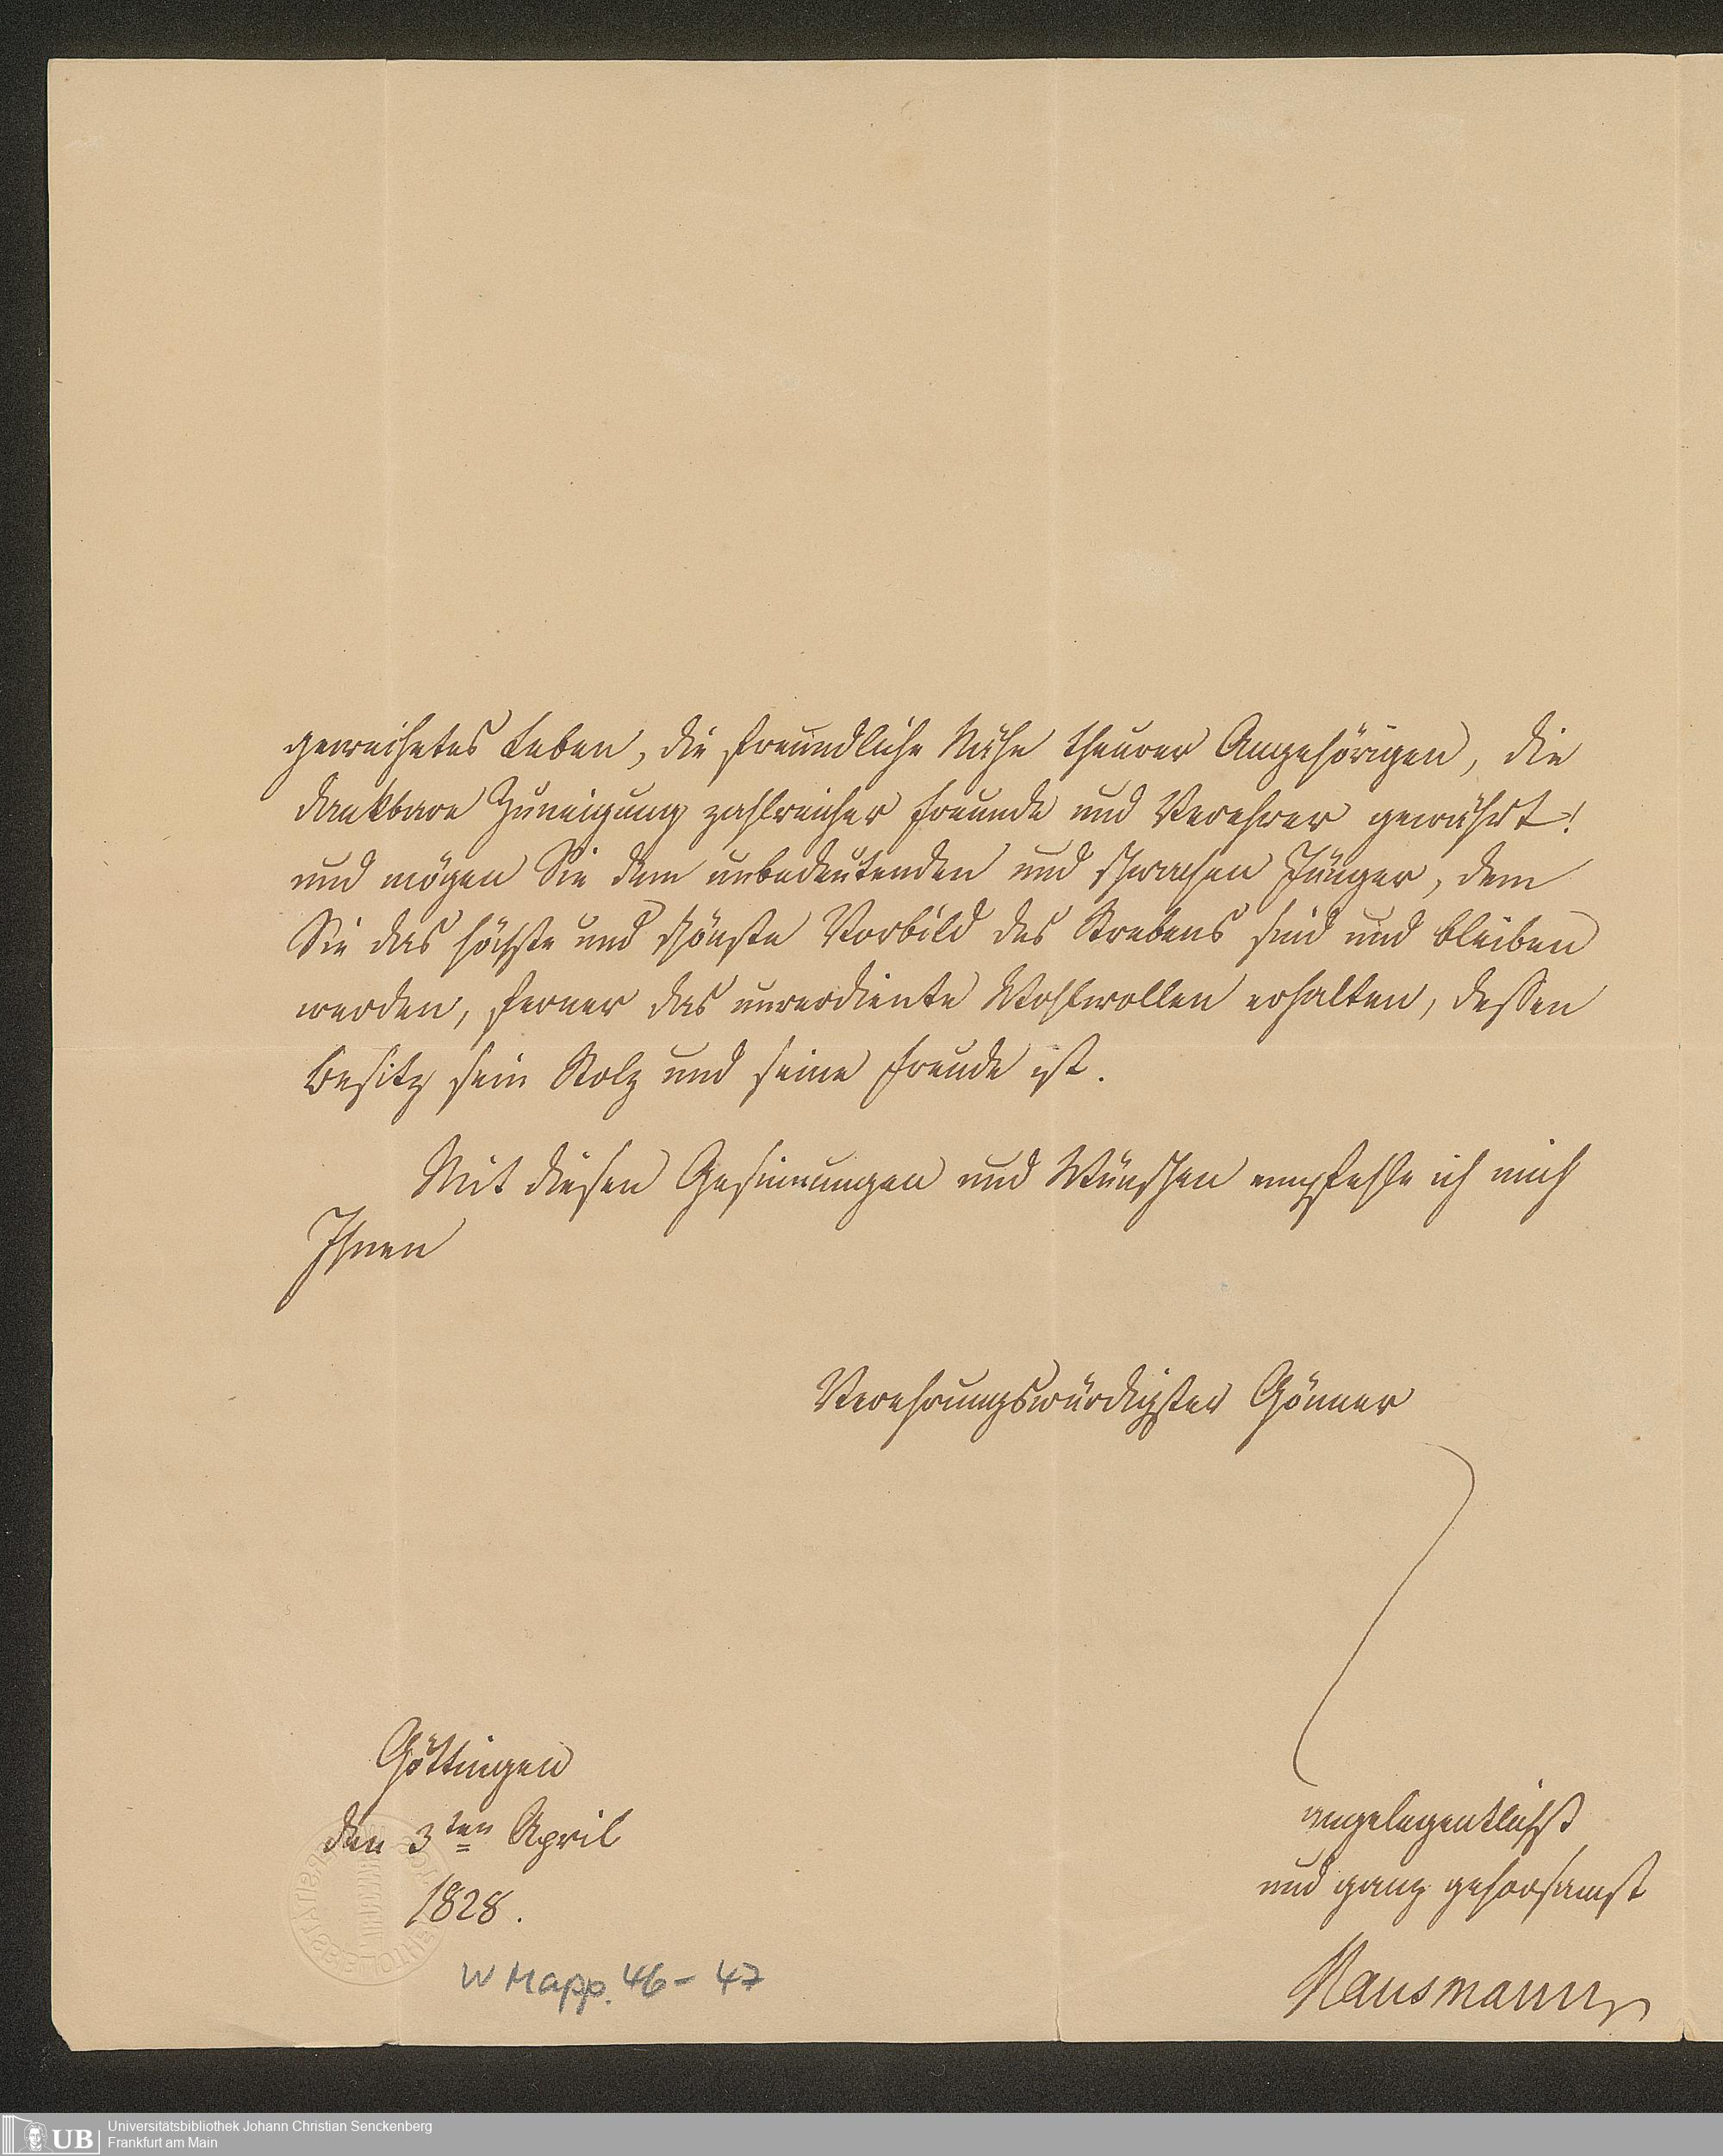 geweihetes Leben, die freundliche Nähe theurer Angehörigen, die
dankbare Zuneigung zahlreicher Freunde und Verehrer gewährt!
und mögen Sie dem unbedeutenden und schwachen Jünger, dem
Sie das höchste und schönste Vorbild des Strebens sind und bleiben
werden, ferner das unverdiente Wohlwollen erhalten, dessen
Besitz sein Stolz und seine Freude ist.
Mit diesen Gesinnungen und Wünschen empfehle ich mich
Ihnen
Verehrungswürdigster Gönner
angelegentlichst
und ganz gehorsamst
Hausmann
Göttingen
den 3ten April
1828.
W Mapp. 46-47
UB
Universitätsbibliothek Johann Christian Senckenberg
Frankfurt am Main